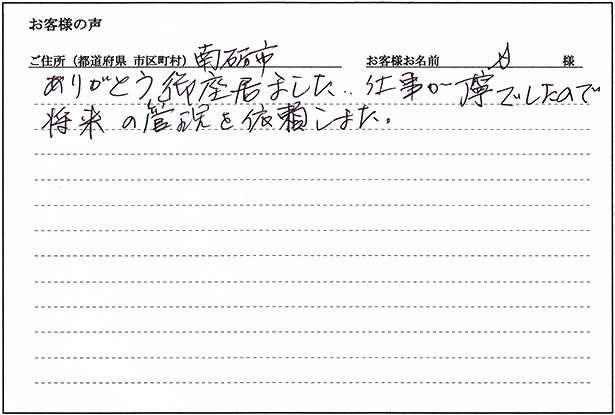 お客様の声
ご住所（都道府県 市区町村）南砺市 お客様お名前 様
ありがとう御座居ました.. 仕事が丁寧でしたので
将来の管理を依頼しました。